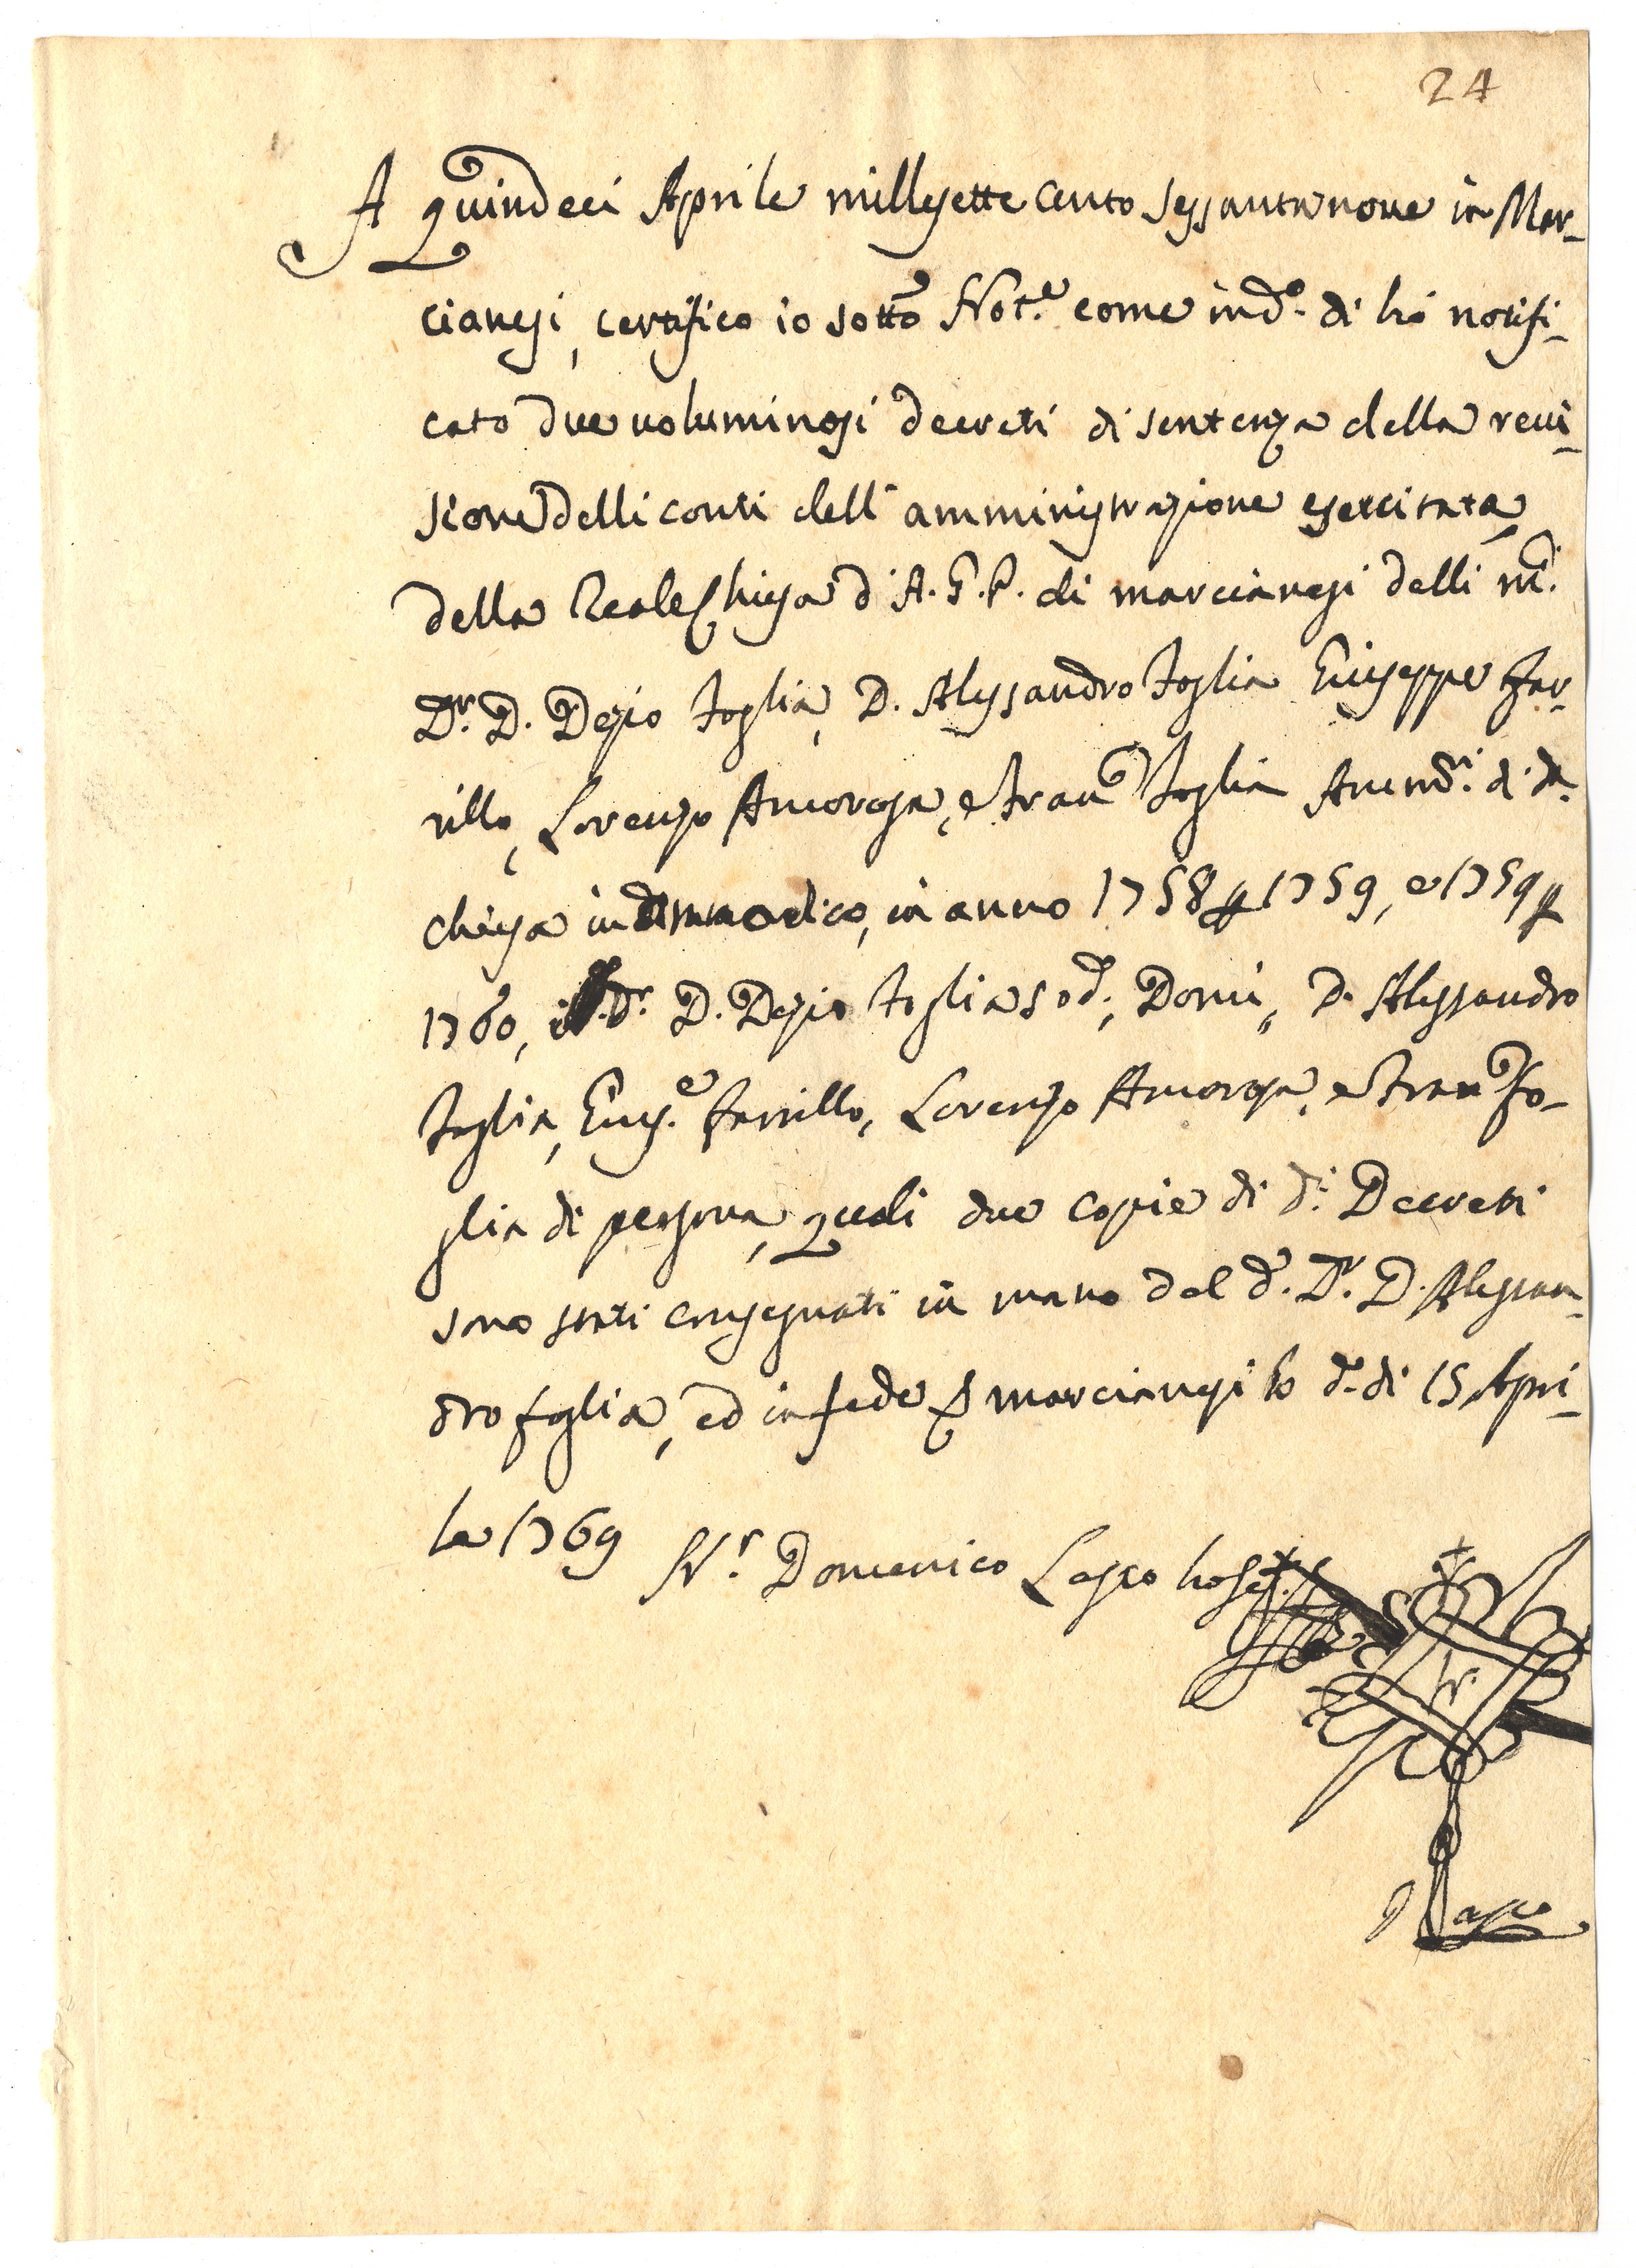 24
A quindeci Aprile millesette cento sessantanove in Mar-
cianesi, certifico io sotto Not.e come in d.o dì hò notifi-
cato due voluminosi decreti di sentenza della revi-
sione delli conti dell'amministrazione esercitata
della Reale Chiesa d'A. G. P. di marcianesi delli m.ci
D.r D. Dezio Foglia, D. Alessandro Foglia Giuseppe Far-
rillo, Lorenzo Amorosa, e Fran.co Foglia Amm.ri di d.a
chiesa in anno 1758 p 1759, e 1759 p
1760, D.r D. Dezio Foglia Domi, D. Alessandro
Foglia, Gius.e Farrillo, Lorenzo Amorosa, e Fran.co Fo-
glia di persona, quali due copie di d.i Decreti
sono stati consegnati in mano del d.o D.r D. Alessan-
dro foglia, ed in fede marcianesi lo d.o dì 15 Apri-
le 1769 N.r Domenico Lasco ho
N.
Lasco